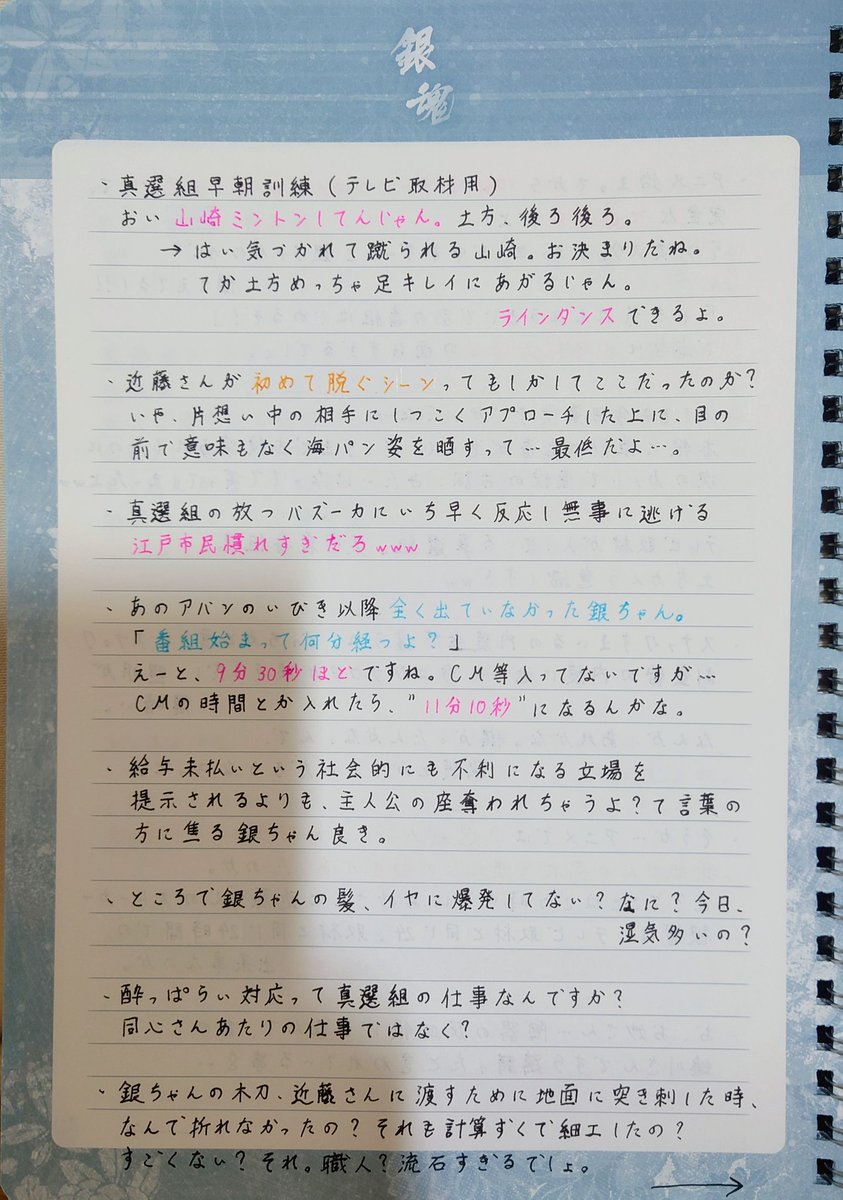 銀魂
・真選組早朝訓練(テレビ取材用)
おい 山崎ミントンしてんじゃん。土方、後ろ後ろ。
→はい気づかれて蹴られる山崎。お決まりだね。
てか土方めっちゃ足キレイにあがるじゃん。
ラインダンスできるよ。
・近藤さんが 初めて脱ぐシーンってもしかしてここだったのか?
いや、片想い中の相手にしつこくアプローチした上に、目の
前で意味もなく海パン姿を晒すって…最低だよ…。
・真選組の放つバズーカにいち早く反応し無事に逃げる
江戸市民慣れすぎだろwww
・あのアバンのいびき以降 全く出ていなかった銀ちゃん。
「番組始まって何分経つよ?」
えーと、9分30秒ほどですね。CM等入ってないですが…
CMの時間とか入れたら、"11分10秒"になるんかな。
・給与未払いという社会的にも不利になる立場を
提示されるよりも、主人公の座奪われちゃうよ?て言葉の
方に焦る銀ちゃん良き。
・ところで銀ちゃんの髪、イヤに爆発してない?なに?今日、
湿気多いの?
・酔っぱらい対応って真選組の仕事なんですか?
同心さんあたりの仕事ではなく?
・銀ちゃんの木刀、近藤さんに渡すために地面に突き刺した時、
なんで折れなかったの?それも計算ずくで細工したの?
すごくない?それ。職人?流石すぎるでしょ。
→